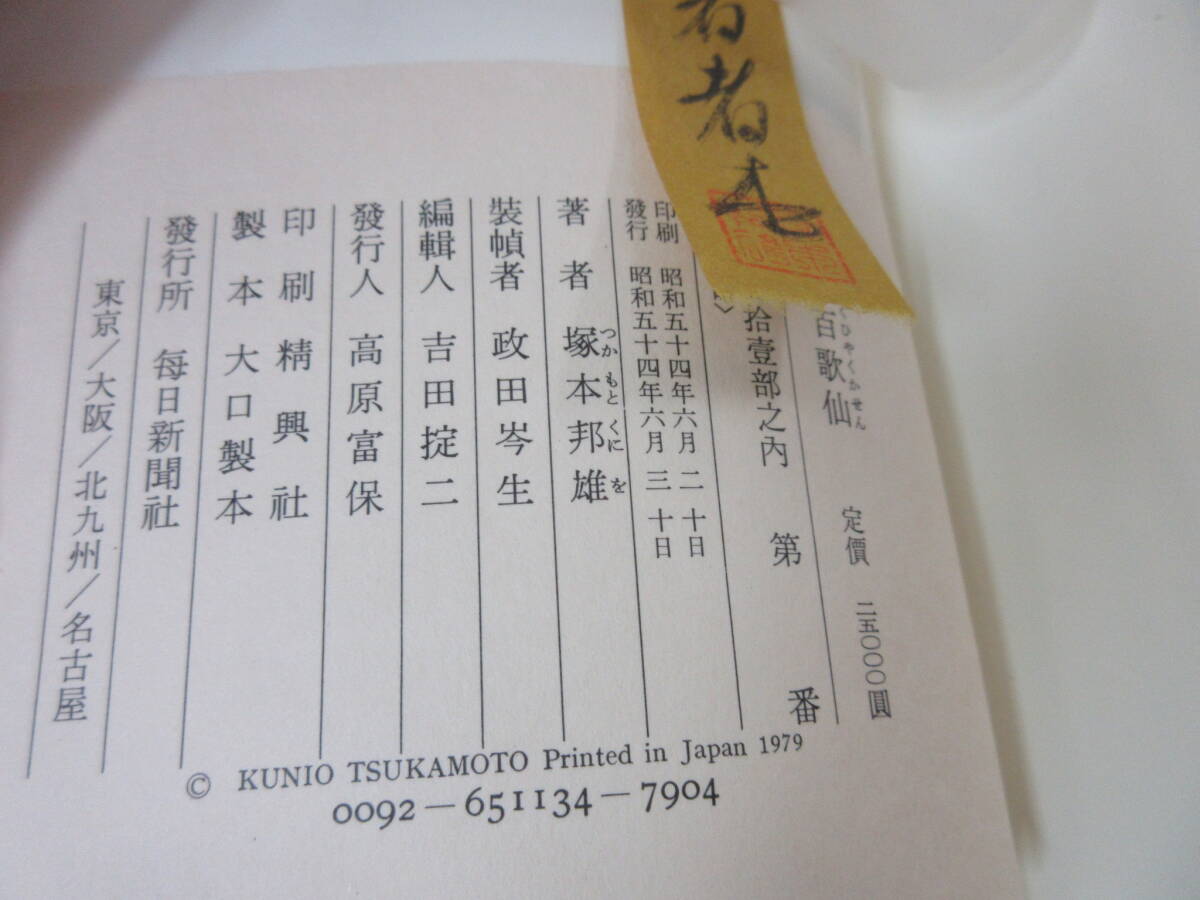 者
百歌仙
くひやくかせん
定價 二五〇〇〇圓
拾壹部之內 第 番
印刷 昭和五十四年六月二十日
發行 昭和五十四年六月三十日
著者 塚本邦雄
つかもとくにを
裝幀者 政田岑生
編輯人 吉田掟二
發行人 高原富保
印刷 精興社
製本 大口製本
發行所 每日新聞社
東京/大阪/北九州/名古屋
© KUNIO TSUKAMOTO Printed in Japan 1979
0092-651134-7904